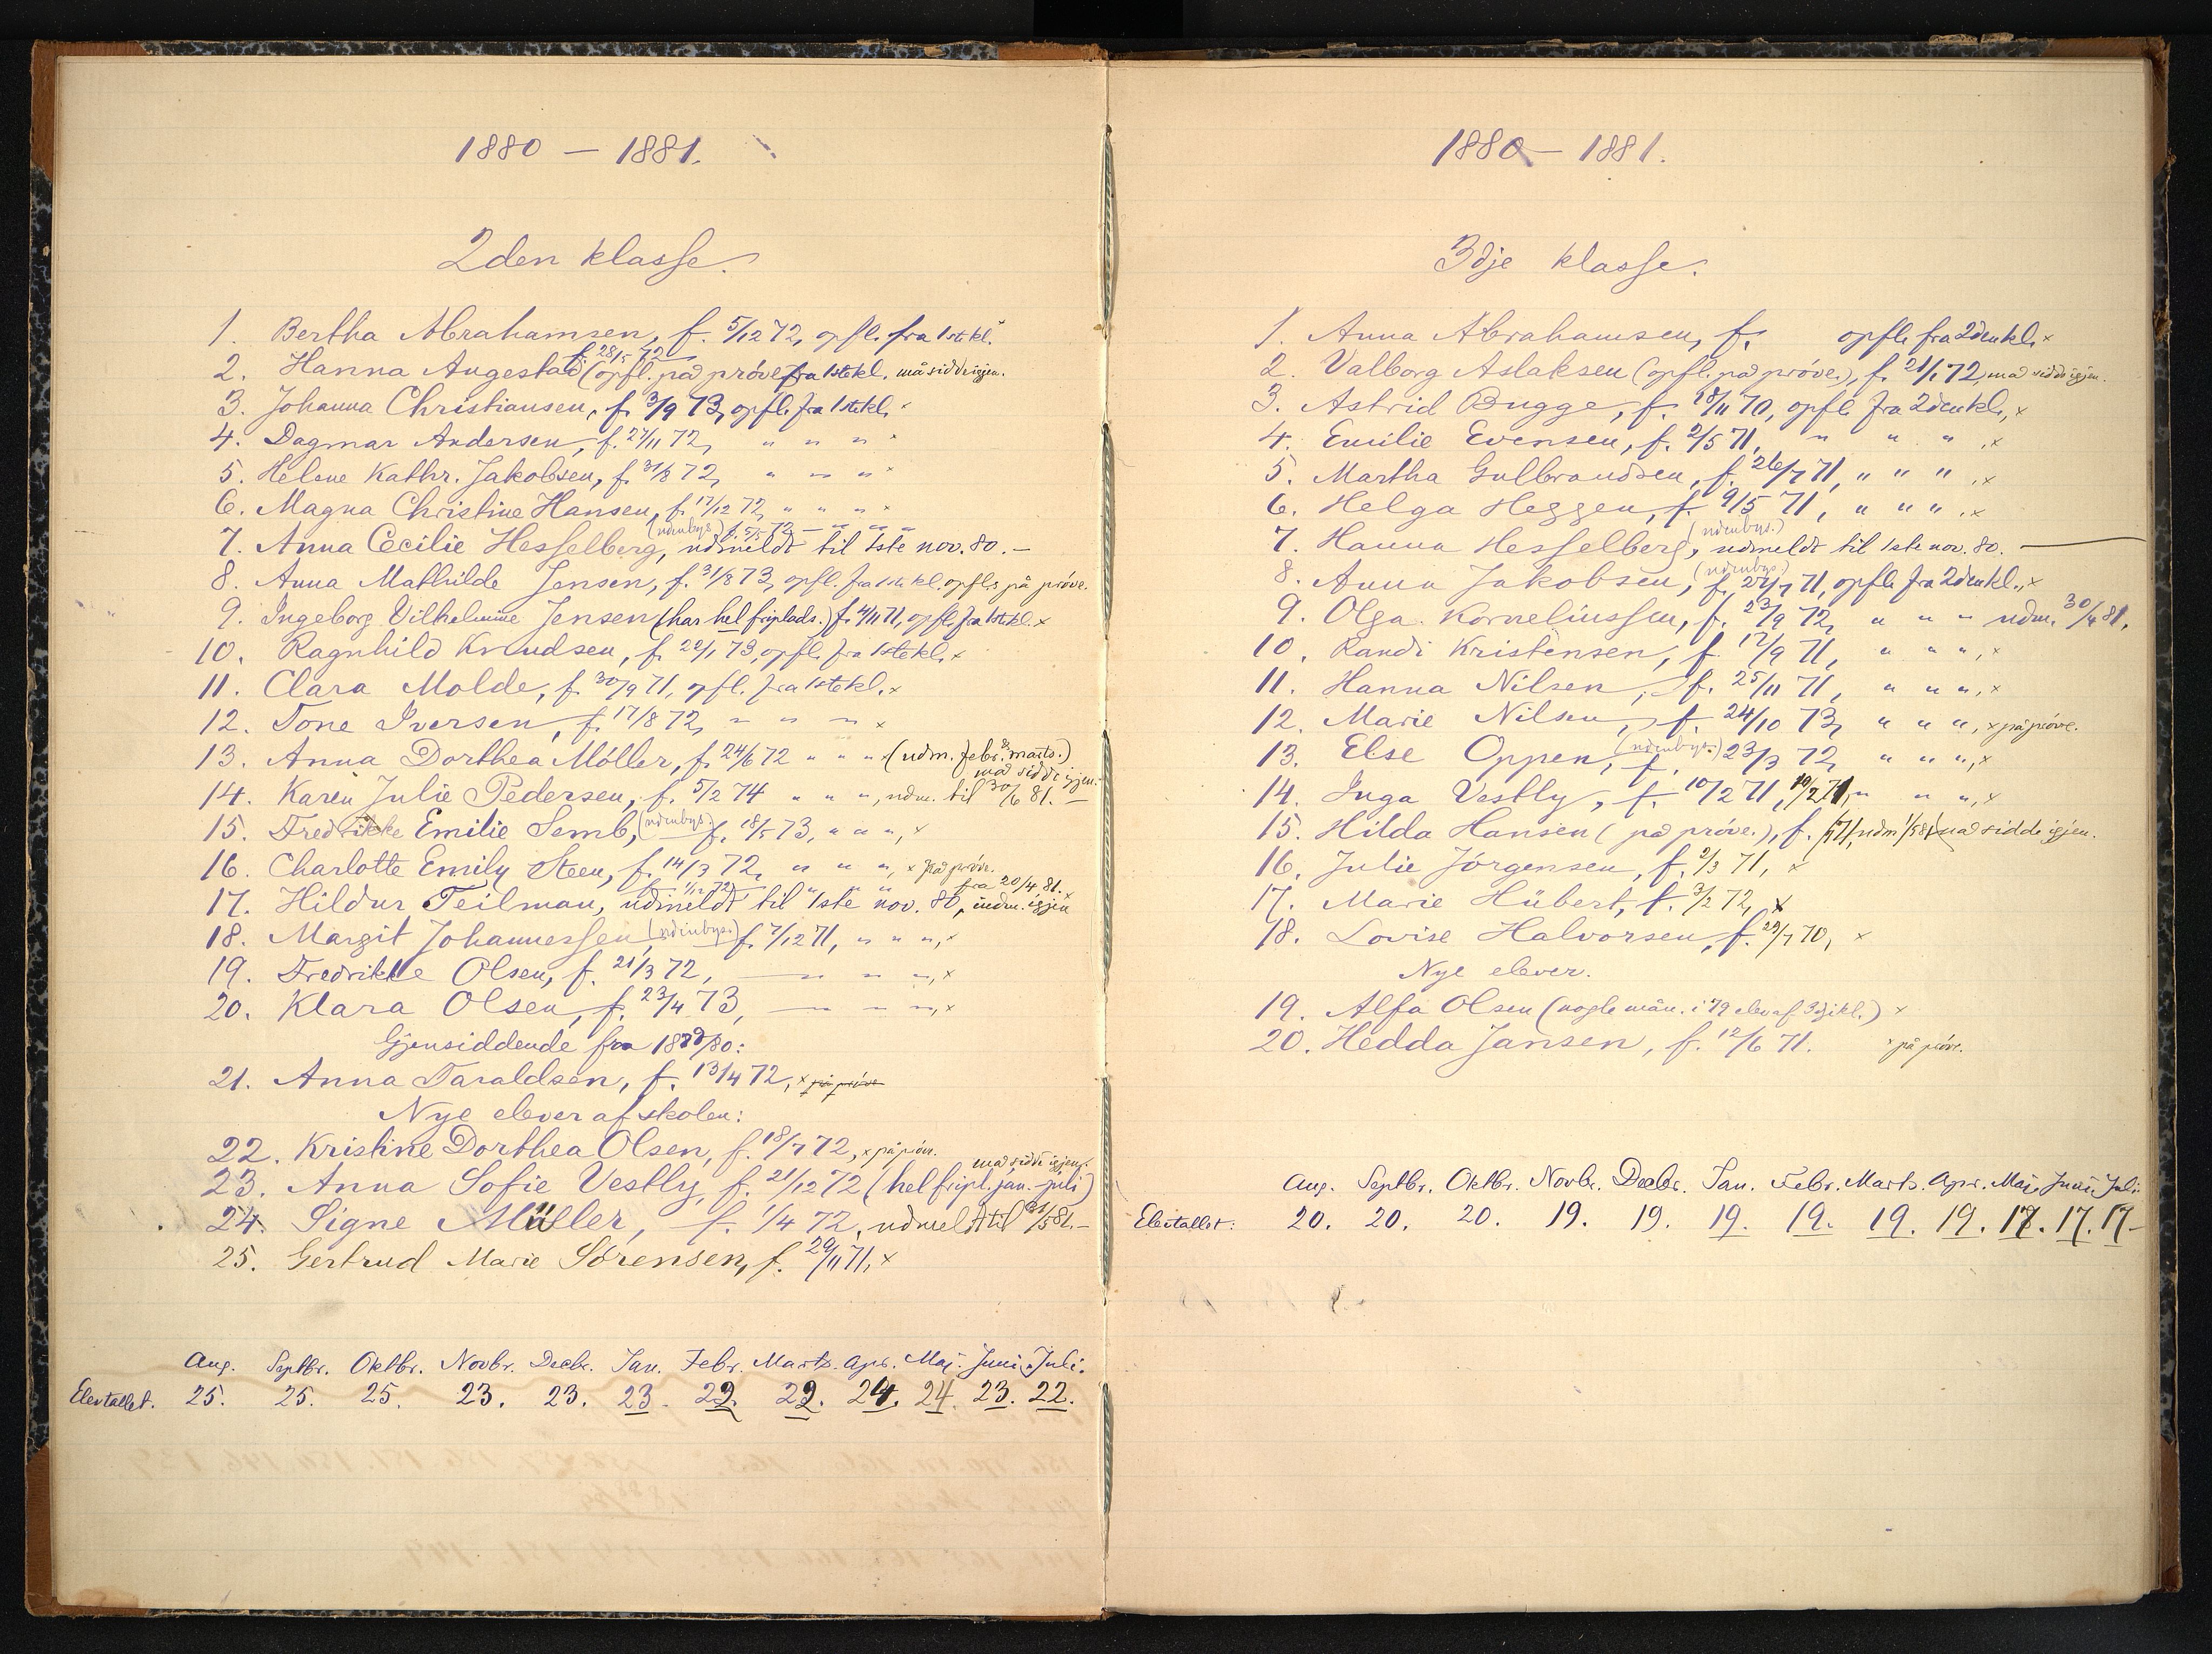 1880 — 1881.
2den klasse.
1. Bertha Abrahamsen, f. 5/12 72, opfl. fra 1ste kl.
f. 28/5 72
2. Hanna Augestad (opfl. paa prøve fra 1ste kl. må sidde igjen.
3. Johanna Christiansen, f. 3/9 73, opfl. fra 1ste kl. ×
4. Dagmar Andersen, f. 27/11 72, " " " ×
5. Helene Kathr. Jakobsen, f. 31/8 72, " " " ×
6. Magna Christine Hansen, f. 17/12 72, " " " ×
(udenbys) f. 5/5 72 — " " "
7. Anna Cecilie Hesselberg, udmeldt til 1ste nov. 80. —
8. Anna Mathilde Jensen, f. 31/8 73, opfl. fra 1ste kl. opfl. på prøve.
9. Ingeborg Vilhelmine Jensen (har hel friplads.) f. 4/11 71, opfl. fra 1ste kl. ×
10. Ragnhild Knudsen, f. 22/1 73, opfl. fra 1ste kl. ×
11. Clara Molde, f. 30/9 71, opfl. fra 1ste kl. ×
12. Tone Iversen, f. 17/8 72, " " " ×
13. Anna Dorthea Möller, f. 24/6 72 " " " (udm. febr. & marts.)
maa sidde igjen.
14. Karen Julie Pedersen, f. 5/2 74 " " ", udm. til 30/6 81. —
15. Fredrikke Emilie Semb, (udenbys.) f. 18/5 73, " " ", ×
16. Charlotte Emily Steen, f. 14/3 72, " " ", × paa prøve.
f. 1/12 72 " " " fra 20/4 81. ×
17. Hildur Teilman, udmeldt til 1ste nov. 80, indm. igjen
18. Margit Johannessen, (udenbys.) f. 7/12 71, " " ", ×
19. Fredrikke Olsen, f. 21/3 72, — " " ", ×
20. Klara Olsen, f. 23/4 73, — " " ", ×
Gjensiddende fra 1879/80:
21. Anna Taraldsen, f. 13/4 72, × på prøve
Nye elever af skolen:
22. Kristine Dorthea Olsen, f. 18/7 72, × på prøve.
maa sidde igjen.
23. Anna Sofie Vestly, f. 21/12 72 (hel fripl. jan. - juli)
24. Signe Müller, f. 1/4 72, udmeldt til 31/5 81. —
25. Gertrud Marie Sörensen, f. 29/11 71, ×
Aug. Septbr. Oktbr. Novbr. Decbr. Jan. Febr. Marts. Apr. Maj. Juni. Juli.
Elevtallet. 25. 25. 25. 23. 23. 23. 22. 22. 24. 24. 23. 22.
1880 — 1881.
3dje klasse.
1. Anna Abrahamsen, f. opfl. fra 2den kl. ×
2. Valborg Aslaksen (opfl. paa prøve.), f. 21/1 72, maa sidde igjen.
3. Astrid Bugge, f. 18/11 70, opfl. fra 2den kl., ×
4. Emilie Evensen, f. 2/5 71, " " ", ×
5. Martha Gulbrandsen, f. 26/7 71, " " ", ×
6. Helga Heggen, f. 9/5 71, " " ", ×
(udenbys.)
7. Hanna Hesselberg, udmeldt til 1ste nov. 80. —
(udenbys.)
8. Anna Jakobsen, f. 27/7 71, opfl. fra 2den kl., ×
9. Olga Korneliussen, f. 23/9 72, " " " udm. 30/4 81.
10. Randi Kristensen, f. 17/9 71, " " ", ×
11. Hanna Nilsen, f. 25/11 71, " " ", ×
12. Marie Nilsen, f. 24/10 73, " " ", × på prøve.
13. Else Oppen, (udenbys.) f. 23/3 72, " " ", ×
14. Inga Vestly, f. 10/2 71, 10/2 71, " " ", ×
15. Hilda Hansen (paa prøve.), f. 71, udm 1/5 81 maa sidde igjen.
16. Julie Jörgensen, f. 2/3 71, ×
17. Marie Hübert, f. 3/2 72, ×
18. Lovise Halvorsen, f. 29/7 70, ×
Nye elever.
19. Alfa Olsen (nogle mån. i 79 elev af 3dje kl.) ×
20. Hedda Jansen, f. 12/6 71. × på prøve.
Aug. Septbr. Oktbr. Novbr. Decbr. Jan. Febr. Marts. Apr. Maj. Juni. Juli.
Elevtallet: 20. 20. 20. 19. 19. 19. 19. 19. 19. 17. 17. 17.